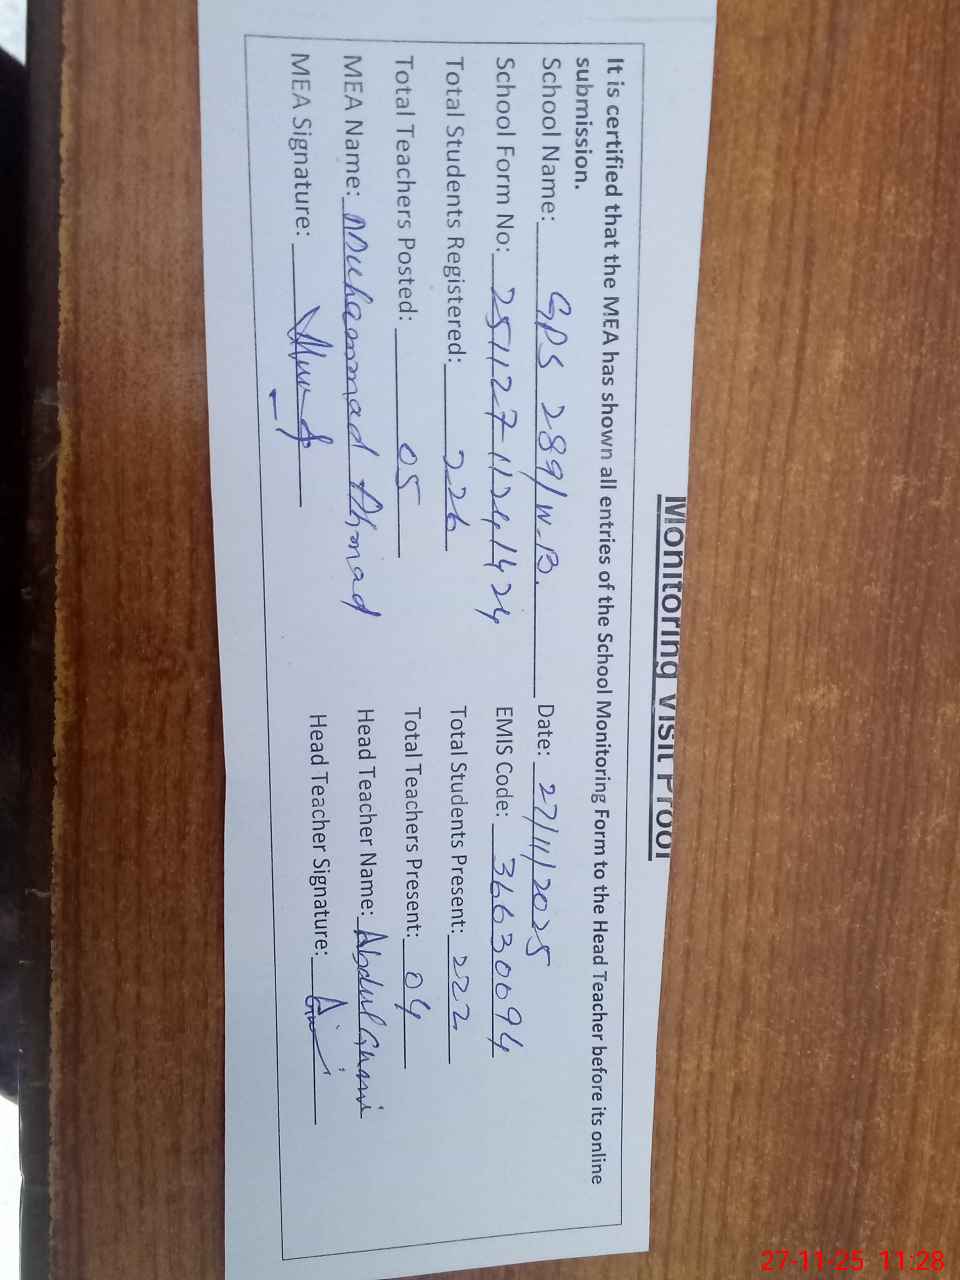 Monitoring Visit Proof
It is certified that the MEA has shown all entries of the School Monitoring Form to the Head Teacher before its online
submission.
School Name: GPS 289/W.B. Date: 27/11/2025
School Form No: 251127-11241424 EMIS Code: 36630094
Total Students Registered: 226 Total Students Present: 222
Total Teachers Posted: 05 Total Teachers Present: 04
MEA Name: Muhammad Ahmad Head Teacher Name: Abdul Ghani
MEA Signature: Head Teacher Signature:
27-11-25 11:28